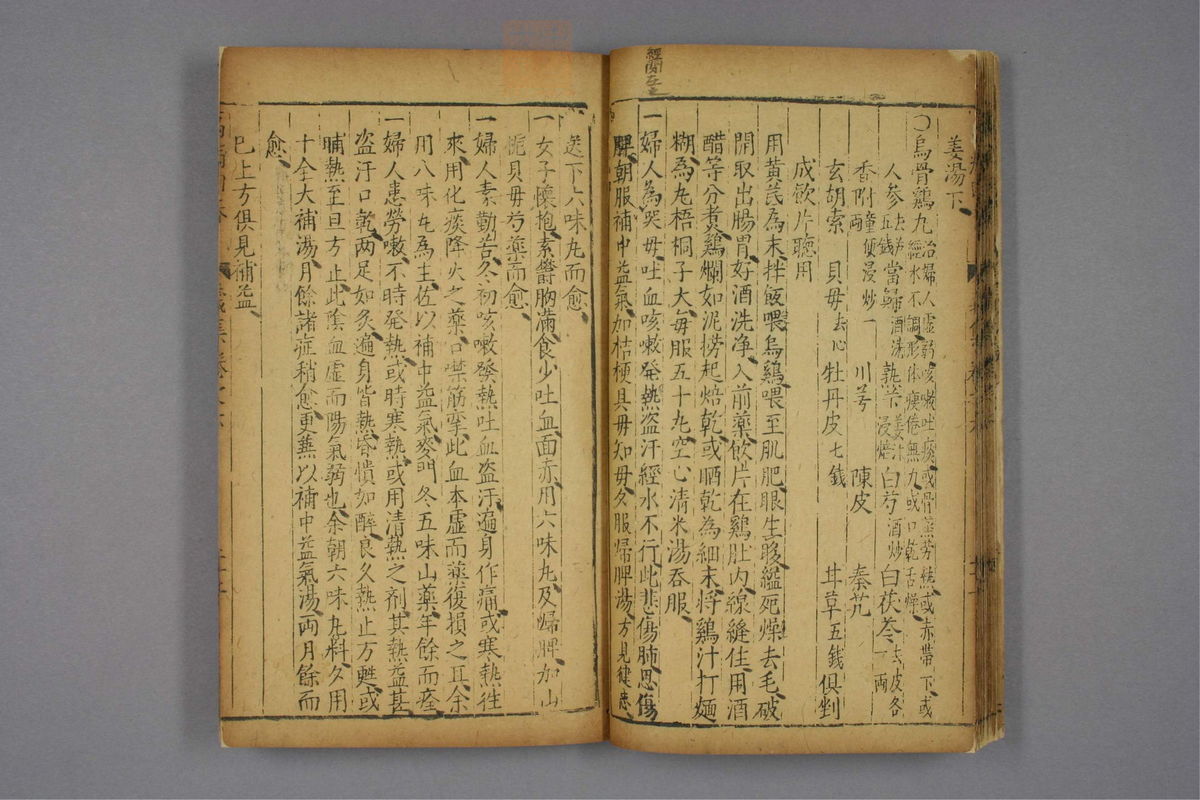 姜湯下
○烏骨鷄丸治婦人虛弱咳嗽吐痰或骨蒸勞熱或赤帶下或
經水不調形体瘦倦無力或口乾舌燥
人參去芦五錢 當歸酒洗 熟苄姜汁浸焙 白芍酒炒 白茯苓去皮各一兩
香附童便浸炒一兩 川芎 陳皮 秦艽
玄胡索 貝母去心 牡丹皮七錢 甘草五錢俱剉
成飲片聽用
用黃芪為末拌飯喂烏鷄喂至肌肥眼生眵纔死燥去毛破
開取出腸胃好酒洗净入前藥飲片在鷄肚内線縫住用酒
醋等分煮鷄爛如泥撈起焙乾或晒乾為細末將鷄汁打麵
糊為丸梧桐子大每服五十丸空心清米湯吞服
一婦人為哭母吐血咳嗽発熱盗汗經水不行此悲傷肺思傷
脾朝服補中益氣加桔梗貝母知母夕服歸脾湯方見健忘
送下六味丸而愈
一女子懷抱素鬱胸滿食少吐血面赤用六味丸及歸脾加山
梔貝母芍藥而愈
一婦人素勤苦冬初咳嗽發熱吐血盗汗遍身作痛或寒熱徃
來用化痰降火之藥口噤筋孿此血本虛而藥復損之耳余
用八味丸為主佐以補中益氣麥門冬五味山藥年餘而痊
一婦人患勞嗽不時発熱或時寒熱或用清熱之剤其熱益甚
盗汗口乾两足如灸遍身皆熱昏憒如醉良久熱止方甦或
晡熱至旦方止此陰血虛而陽氣弱也余朝六味丸料夕用
十全大補湯月餘諸症稍愈更蕪以補中益氣湯両月餘而
愈
巳上方俱見補益
經閉